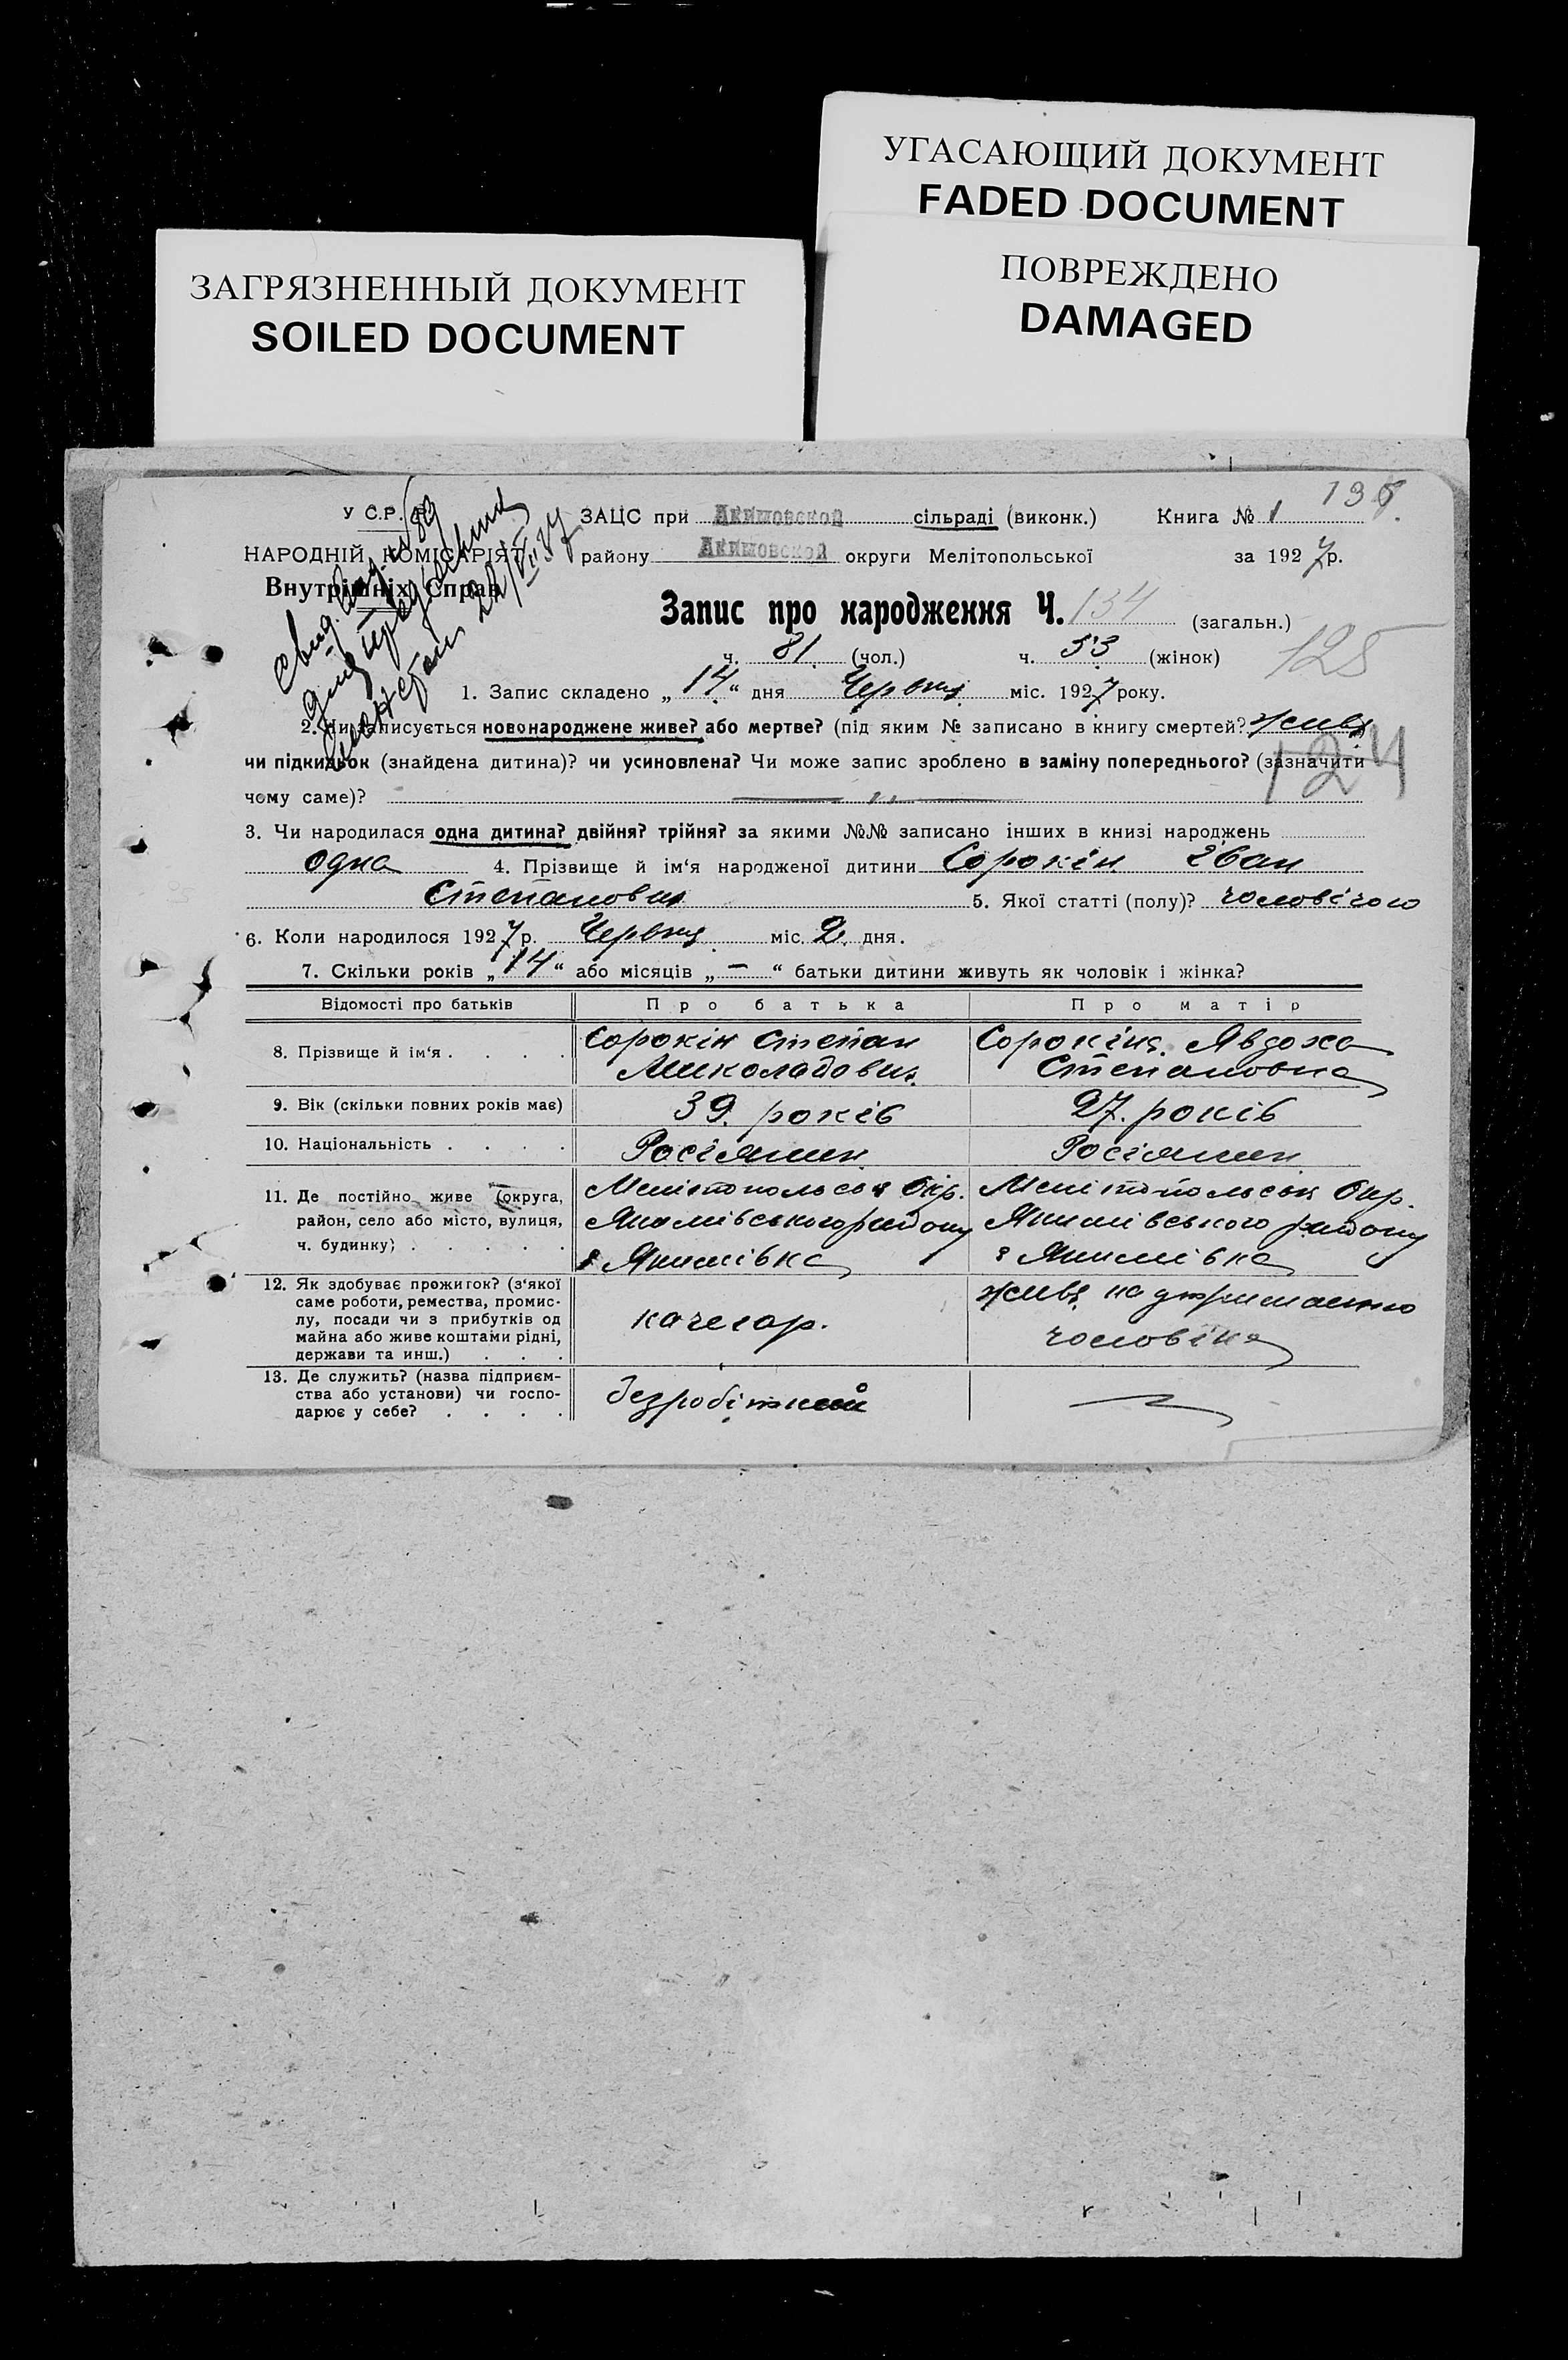 УГАСАЮЩИЙ ДОКУМЕНТ
FADED DOCUMENT
ПОВРЕЖДЕНО
DAMAGED
ЗАГРЯЗНЕННЫЙ ДОКУМЕНТ
SOILED DOCUMENT
У С.Р.Р.
НАРОДНІЙ КОМІСАРІЯТ
Внутрішніх Справ
ЗАЦС при Акимовской сільраді (виконк.) Книга № 1
району Акимовской округи Мелітопольської за 1927р.
Запис про народження Ч. 134 (загальн.)
ч. 81. (чол.) ч. 53 (жінок)
125
1. Запис складено „14“ дня Червня міс. 1927 року.
2. Чи записується новонароджене живе? або мертве? (під яким № записано в книгу смертей? живе
чи підкидьок (знайдена дитина)? чи усиновлена? Чи може запис зроблено в заміну попереднього? (зазначити
124
чому саме)?
3. Чи народилася одна дитина? двійня? трійня? за якими №№ записано інших в книзі народжень
одна 4. Прізвище й ім‘я народженої дитини Сорокін Іван
Степанович 5. Якої статті (полу)? чоловічого
6. Коли народилося 1927р. Червня міс. 2. дня.
7. Скільки років „14“ або місяців „—“ батьки дитини живуть як чоловік і жінка?
Відомості про батьків Про батька Про матір
8. Прізвище й ім‘я . . . . Сорокін Степан Миколайович Сорокіна Явдоха Степановна
9. Вік (скільки повних років має) 39. років 27. років
10. Національність . . . . Росіянин Росіянин
11. Де постійно живе (округа, район, село або місто, вулиця, ч. будинку) . . . . . Мелітопольськ Окр. Якимівського району Якимівка Мелітопольськ Окр. Якимівського району Якимівка
12. Як здобуває прожиток? (з‘якої саме роботи, ремества, промислу, посади чи з прибутків од майна або живе коштами рідні, держави та инш.) . . . качегар. живе на утриманню чоловіка
13. Де служить? (назва підприємства або установи) чи господарює у себе? . . . . безробітний